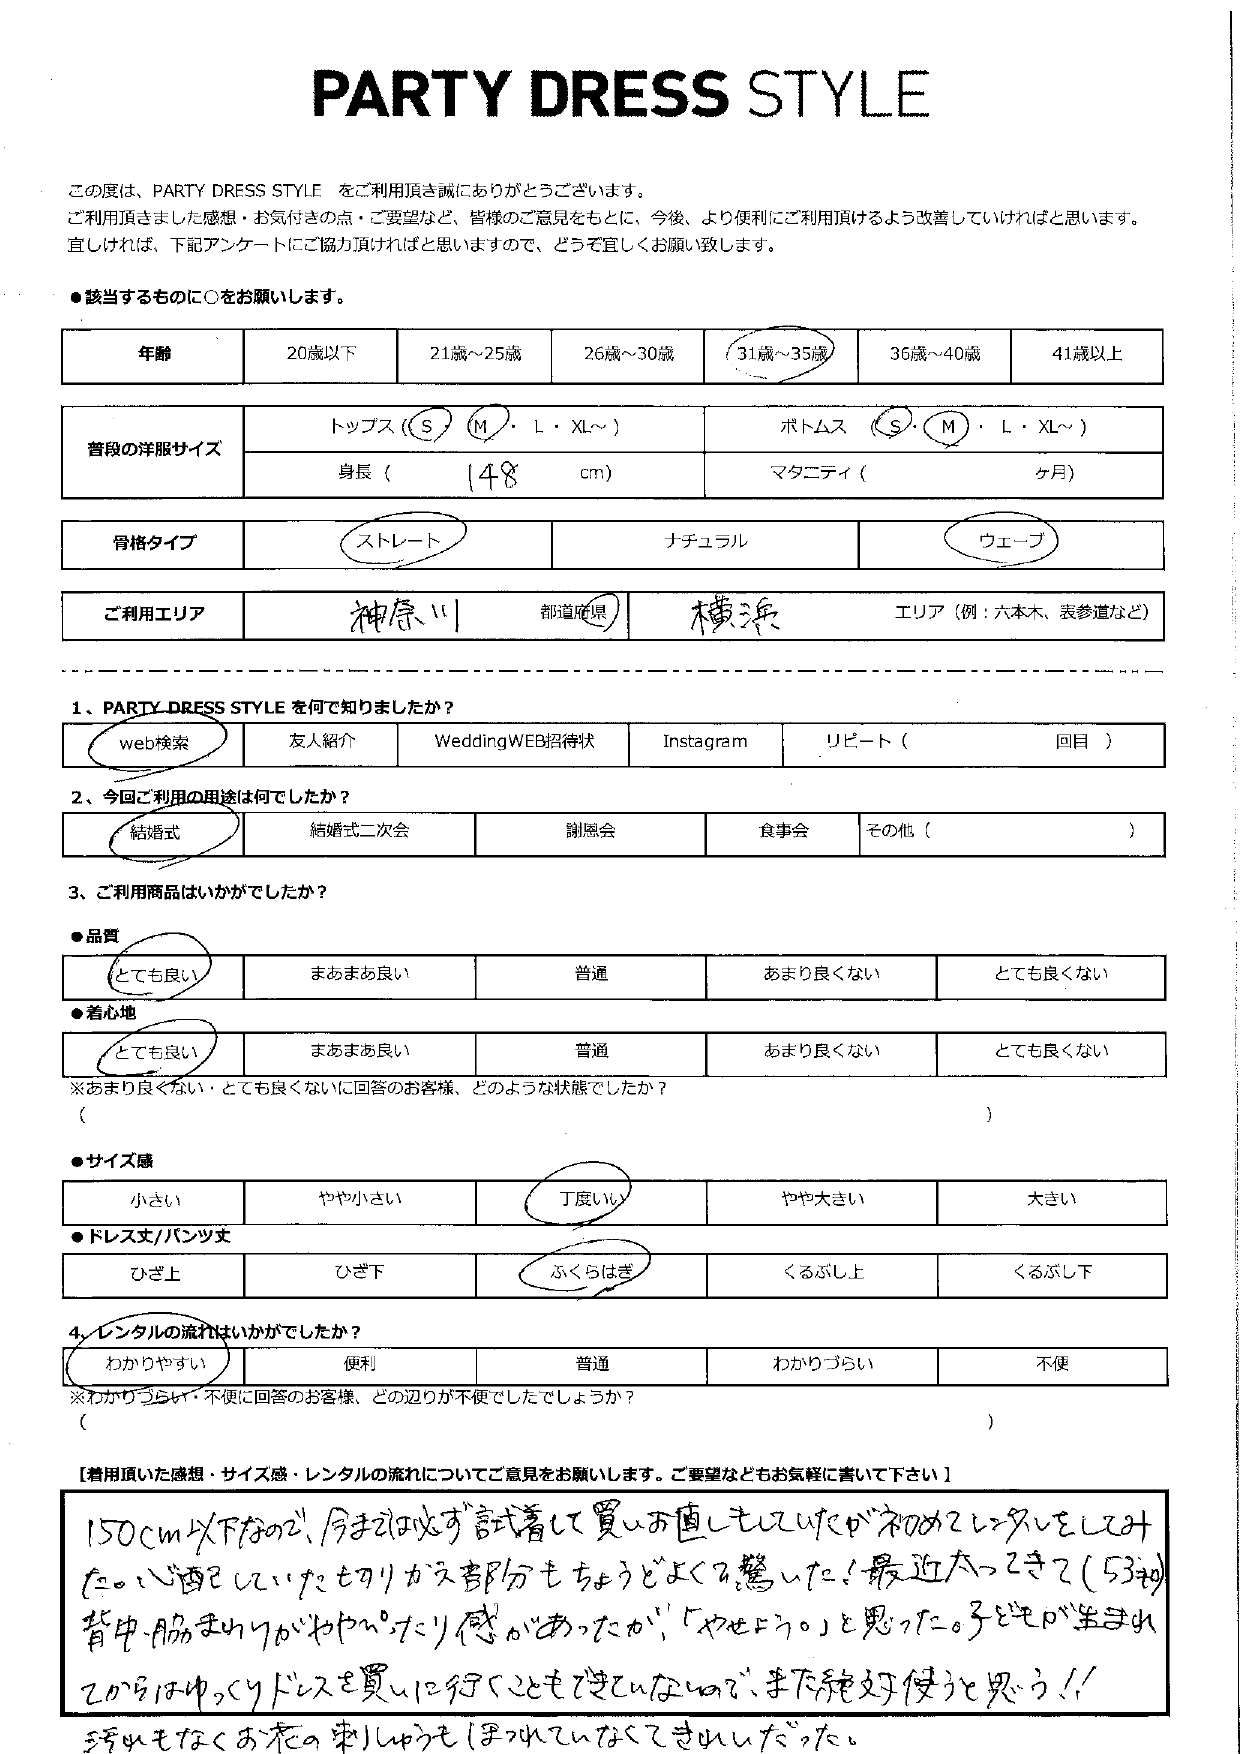 PARTY DRESS STYLE
この度は、PARTY DRESS STYLE をご利用頂き誠にありがとうございます。
ご利用頂きました感想・お気付きの点・ご要望など、皆様のご意見をもとに、今後、より便利にご利用頂けるよう改善していければと思います。
宜しければ、下記アンケートにご協力頂ければと思いますので、どうぞ宜しくお願い致します。
●該当するものに○をお願いします。
年齢 20歳以下 21歳～25歳 26歳～30歳 31歳～35歳 36歳～40歳 41歳以上
普段の洋服サイズ トップス (S・M・L・XL～) ボトムス (S・M・L・XL～)
身長 ( 148 cm) マタニティ ( ヶ月)
骨格タイプ ストレート ナチュラル ウェーブ
ご利用エリア 神奈川 都道府県 横浜 エリア（例：六本木、表参道など）
1、PARTY DRESS STYLE を何で知りましたか？
web検索 友人紹介 WeddingWEB招待状 Instagram リピート ( 回目 )
2、今回ご利用の用途は何でしたか？
結婚式 結婚式二次会 謝恩会 食事会 その他 ( )
3、ご利用商品はいかがでしたか？
●品質
とても良い まあまあ良い 普通 あまり良くない とても良くない
●着心地
とても良い まあまあ良い 普通 あまり良くない とても良くない
※あまり良くない・とても良くないに回答のお客様、どのような状態でしたか？
( )
●サイズ感
小さい やや小さい 丁度いい やや大きい 大きい
●ドレス丈/パンツ丈
ひざ上 ひざ下 ふくらはぎ くるぶし上 くるぶし下
4、レンタルの流れはいかがでしたか？
わかりやすい 便利 普通 わかりづらい 不便
※わかりづらい・不便に回答のお客様、どの辺りが不便でしたでしょうか？
( )
【着用頂いた感想・サイズ感・レンタルの流れについてご意見をお願いします。ご要望などもお気軽に書いて下さい】
150cm以下なので、今までは必ず試着して買いお直しもしていたが初めてレンタルをしてみ
た。心配していた切りかえ部分もちょうどよくて驚いた！最近太ってきて(53キロ)
背中・脇まわりがややぴったり感があったが、「やせよう。」と思った。子どもが生まれ
てからはゆっくりドレスを買いに行くこともできていないので、また絶対使うと思う!!
汚れもなくお花の刺しゅうもほつれていなくてきれいだった。